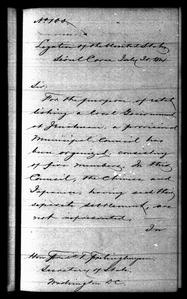 No 106.
Legation of the United States
Seoul Corea July 30, 1884
Sir:
For the purpose of estab-
lishing a local Government
at Jenchuan, a provisional
Municipal Council has
been organized consisting
of five members. In this
Council, the Chinese and
Japanese, having each their
separate settlement, are
not represented.
In
Hon. Fredk. T. Frelinghuysen
Secretary of State.
Washington D.C.